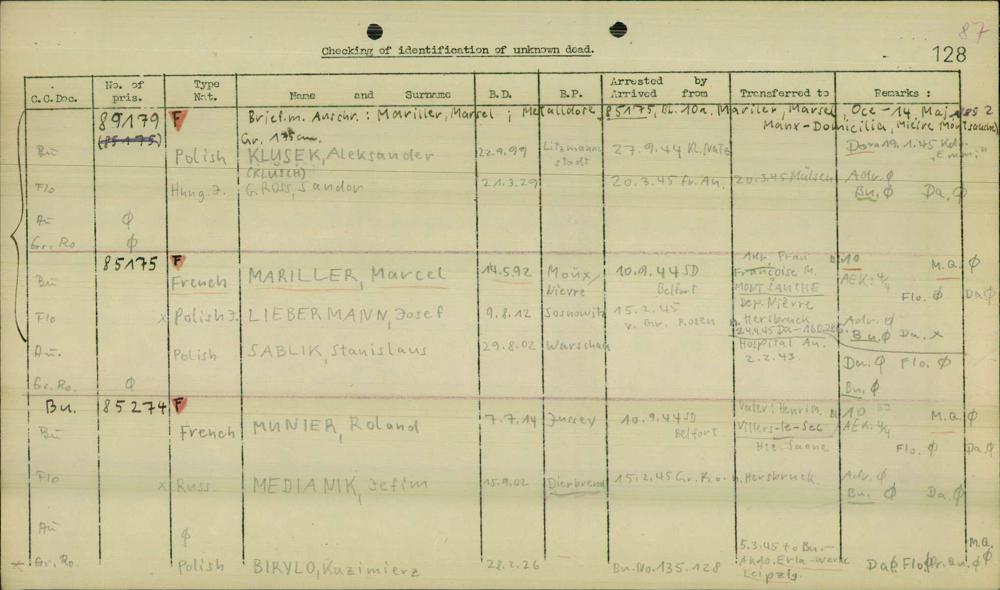 87
128
Checking of identification of unknown dead.
C.C.Doc. No. of pris. Type Nat. Name and Surname B.D. B.P. Arrested by Arrived from Transferred to Remarks :
89179 F Brief.m. Anschr.: Mariller, Marsel ; Metalldore, 85175, Bl. 10a, Mariler, Marsel, Oce-14, Maj 1852
(85175) Gr. 175cm. Manx-Domicilia,
Bu Polish KLUSEK, Aleksander 22.9.99 Litzmannstadt 27.9.44 KL. Natz Dora 19.1.45 Kdo.
(KLUSCH)
Flo Hung.J. GROSS, Sandor 21.3.29 20.3.45 fr. Au. 20.3.45 Mülsen Adr. ∅
Bu. ∅ Da. ∅
Au ∅
Gr. Ro ∅
85175 F
Bu French MARILLER, Marcel 14.5.92 Moüx/Nievre 10.9.44 SD Belfort Anv. Frau Françoise M. MONTSAUCHE Dep. Nièvre 10 AEK: 4/4 M.a. ∅
Flo. ∅ Da ∅
Flo x Polish J. LIEBERMANN, Josef 9.8.12 Sosnowitz 15.2.45 v. Gr. Rosen n. Hersbruck Adr. ∅
Bu ∅ Da. x
Au. Polish SABLIK, Stanislaus 29.8.02 Warschau Hospital Au. 2.2.43. Da. ∅ Flo. ∅
Gr. Ro. ∅ Bu. ∅
Bu. 85274 F
Bu French MUNIER, Roland 7.7.14 Jussey 10.9.44 SD Belfort Vater: Henri M. Villers-le-Sec Hte. Saone 10 AEK. 4/4 M.a. ∅
Flo. ∅ Da ∅
Flo x Russ. MEDIANIK, Jefim 15.9.02 15.2.45 Gr. R. n. Hersbruck. Adr. ∅
Bu. ∅ Da. ∅
Au ∅
Gr. Ro. Polish BIRYLO, Kazimierz 28.2.26 Bu. No. 135.128 5.3.45 to Bu.- AKdo. Erla-Werke Leipzig. M.a. ∅
Da ∅ Flo ∅